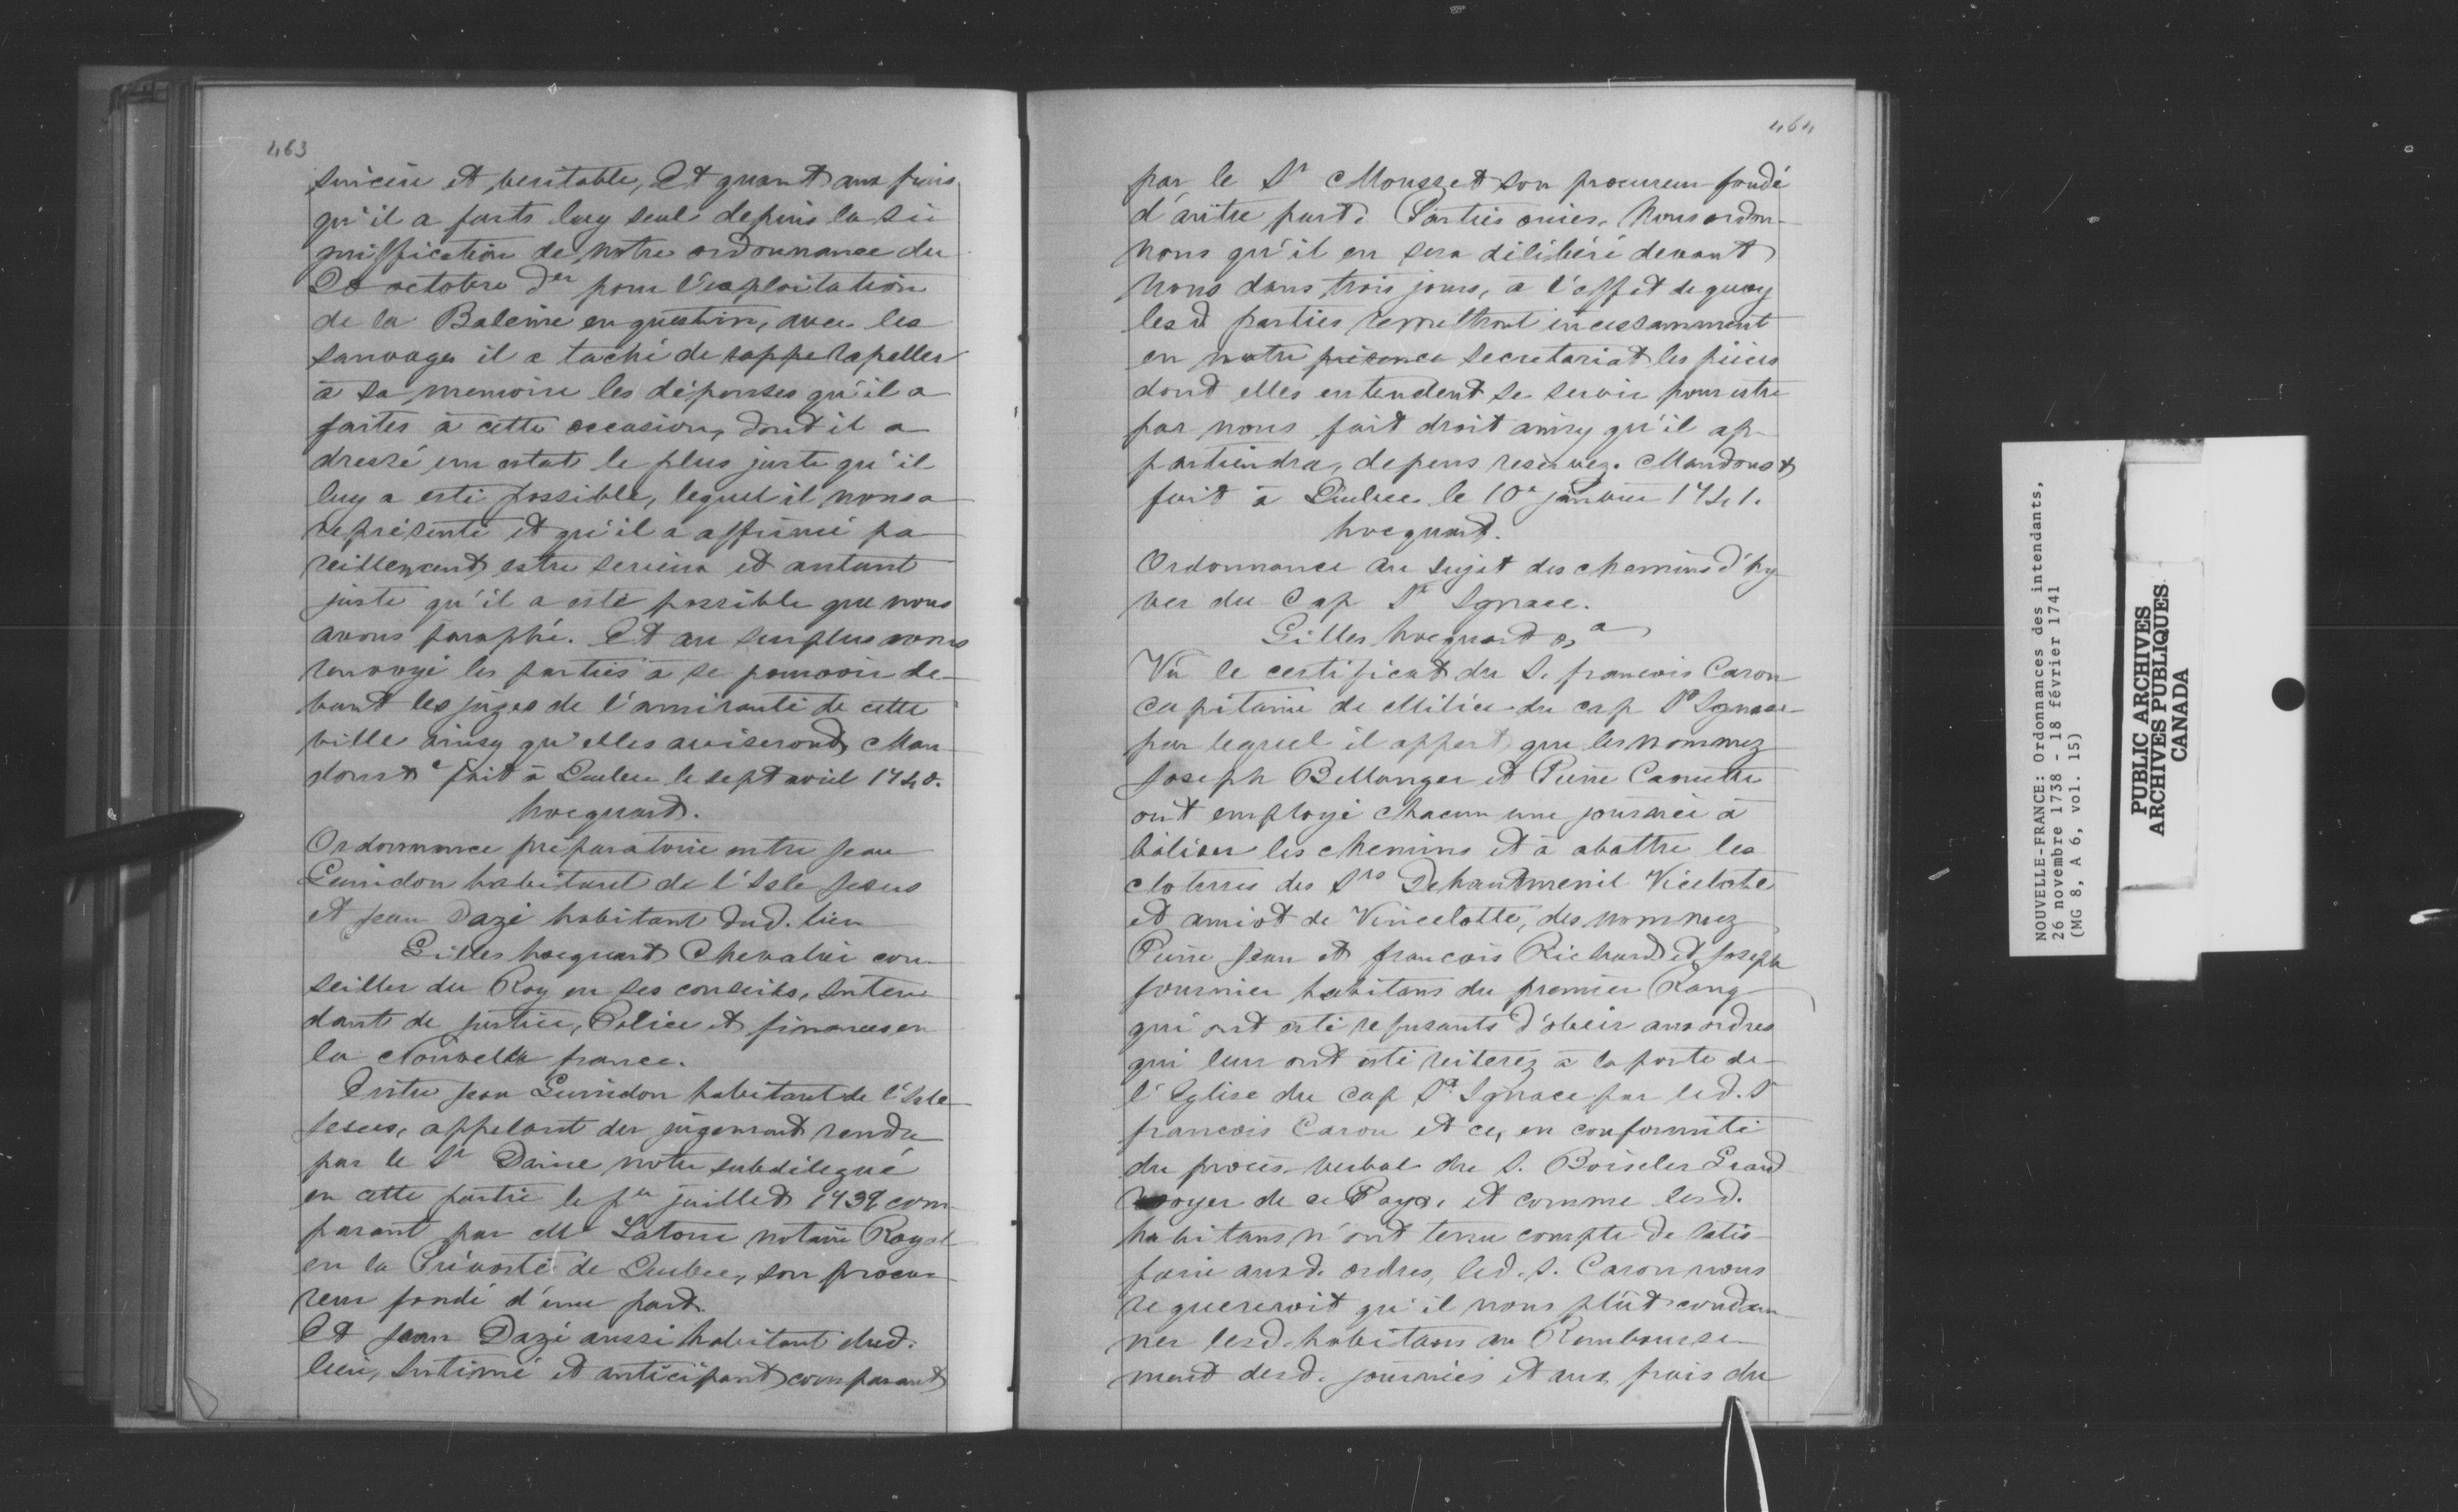 463
sincere et veritable, Et quant aux frais
qu'il a faits luy seul depuis la si
gniffication de notre ordonnance du
20 octobre der pour l'exploitation
de la Baleine en question, avec les
sauvages il a taché de rappe rapeller
à sa memoire les dépenses qu'il a
faites à cette occasion, dont il a
dressé un estat le plus juste qu'il
luy a esté possible, lequel il nous a
représenté et qu'il a affirmé pa
reillement estre serieux et autant
juste qu'il a esté possible que nous
avons paraphé. Et au surplus avons
renvoyé les parties à se pourvoir de-
vant les juges de l'amirauté de cette
ville ainsy qu'elles aviseront, Man
dons &c fait à Quebec le sept avril 1740.
hocquart.
Ordonnance préparatoire entre Jean
Guindon habitant de l'Isle Jesus
et Jean Dazé habitant dud. lieu
Gilles hocquart Chevalier con-
seiller du Roy en ses conseils, Inten
dant de justice, Police et finances en
la Nouvelle france.
Entre Jean Guindon habitant de l'Isle
Jesus, appelant du jugement rendu
par le Sr Daine notre subdélégué
en cette partie le per juillet 1739 com-
parant par Me Latour notaire Royal
en la Prévosté de Quebec, son procu-
reur fondé d'une part.
Et Jean Dazé aussi habitant dud.
lieu, Intimé et anticipant comparant
464
par le Sr Mousset son procureur fondé
d'autre part. Parties ouies, Nous ordon-
nons qu'il en sera délibéré devant
Nous dans trois jours, à l'effet de quoy
lesd parties remettront incessamment
en notre présence secretariat les pièces
dont elles entendent se servir pour estre
par nous fait droit ainsy qu'il ap-
partiendra, depens reservez. Mandons &
fait à Quebec le 10e janvier 1741.
hocquart.
Ordonnance au sujet des chemins d'hy
ver du Cap St Ignace.
Gilles hocquart &a
Vû le certificat du S. francois Caron
capitaine de Milice du cap St Ignace
par lequel il appert que les nommez
Joseph Bellanger et Pierre Canuette
ont employé chacun une journée à
baliser les chemins et à abattre les
clotures des Srs Dehautmenil Vincelote
et amiot de Vincelotte, des nommez
Pierre Jean et francois Richard et Joseph
fournier habitans du premier Rang
qui ont esté refusants d'obeir aux ordres
qui leur ont esté reiterez à la porte de
l'Eglise du Cap St Ignace par led. Sr
francois Caron et ce, en conformité
du procès-verbal du S. Boiscler Grand
voyer de ce Pays, et comme lesd.
habitans n'ont tenu compte de satis-
faire auxd. ordres, led. S. Caron nous
requereroit qu'il nous plût condam
ner lesd. habitans au Rembourse-
ment desd. journées et aux frais du
NOUVELLE-FRANCE: Ordonnances des intendants,
26 novembre 1738 - 18 février 1741
(MG 8, A 6, vol. 15)
PUBLIC ARCHIVES
ARCHIVES PUBLIQUES
CANADA